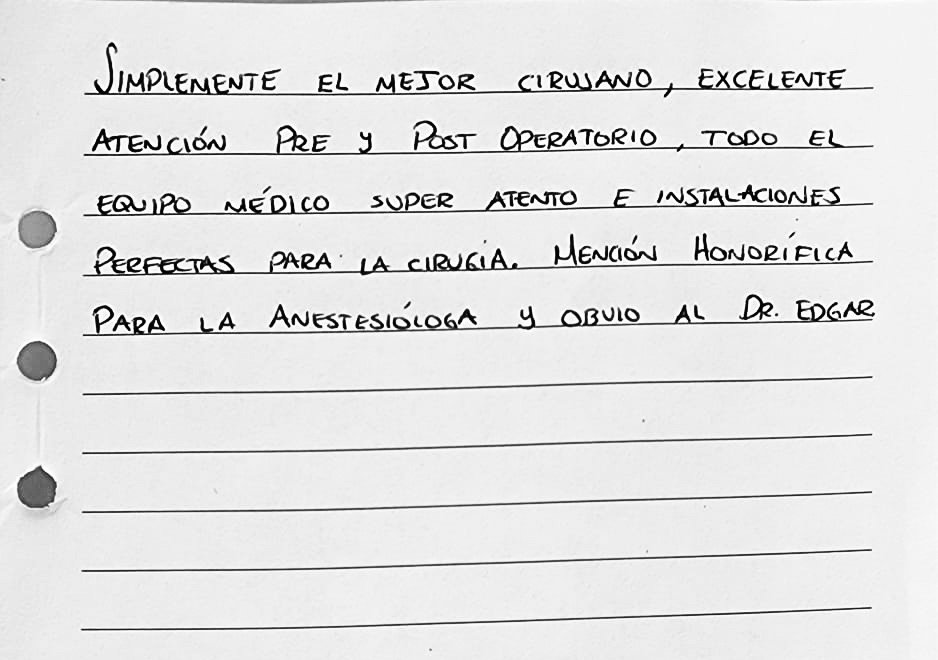 SIMPLEMENTE EL MEJOR CIRUJANO, EXCELENTE
ATENCIÓN PRE Y POST OPERATORIO, TODO EL
EQUIPO MÉDICO SUPER ATENTO E INSTALACIONES
PERFECTAS PARA LA CIRUGÍA. MENCIÓN HONORÍFICA
PARA LA ANESTESIÓLOGA Y OBVIO AL DR. EDGAR